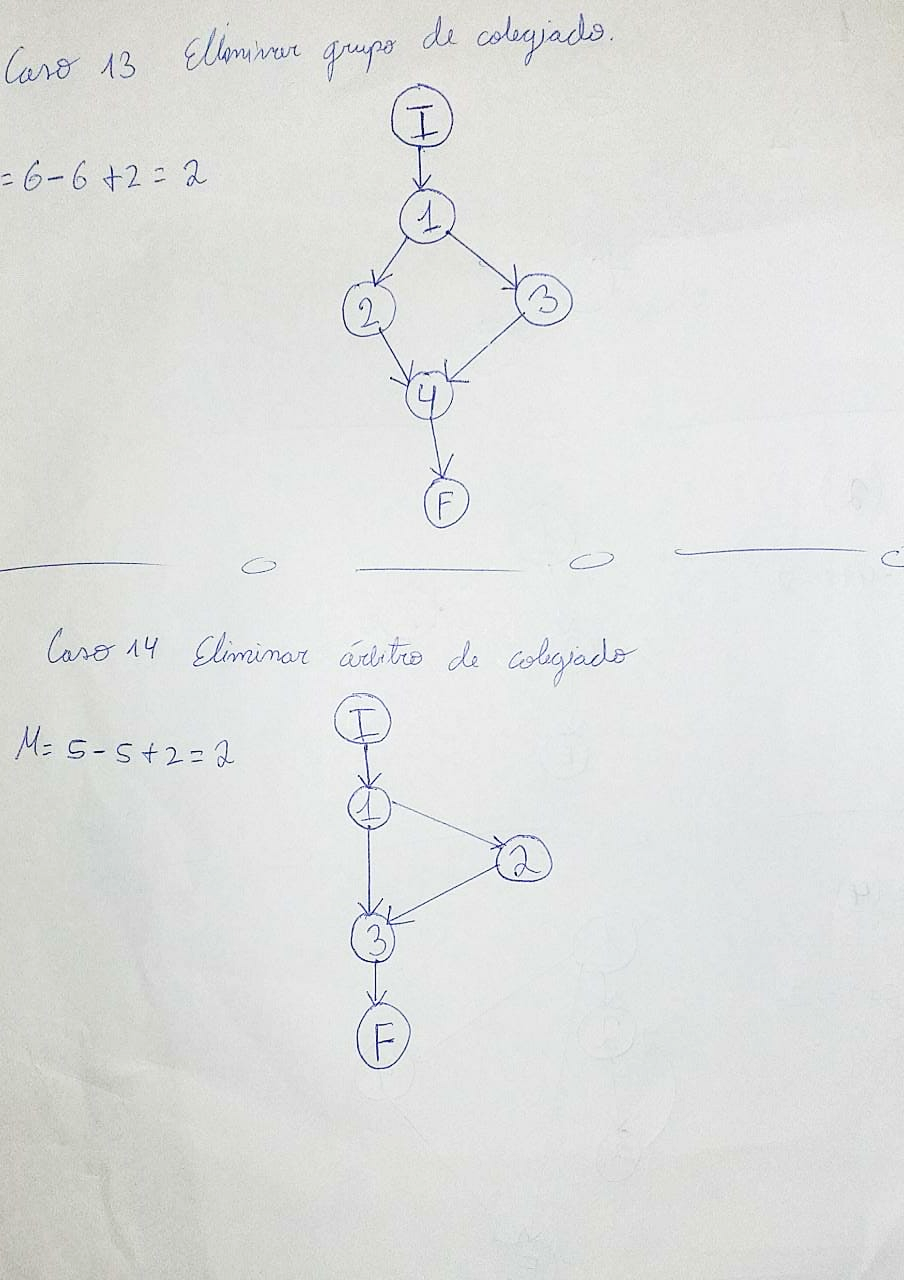 Caso 13 Elliminar grupo de colegiado.
I
= 6 - 6 + 2 = 2
1
2
3
4
F
Caso 14 Eliminar árbitro de colegiado
I
M = 5 - 5 + 2 = 2
1
2
3
F